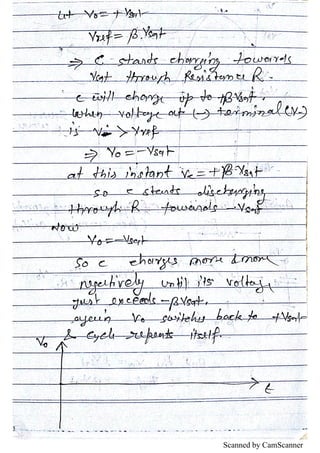 let Vo = + Vsat
Vref = β.Vsat
⇒ C starts charging towards
Vsat through Resistance R.
C will charge up to +βVsat.
When voltage at (-) terminal (V-)
is V- > Vref
⇒ Vo = -Vsat
at this instant Vc = +β.Vsat
so C starts discharging
through R towards -Vsat
Now
Vo = -Vsat
So C charges more & more
negatively until its voltage
just exceeds -βVsat.
again Vo switches back to +Vsat
& cycle repeats itself.
Vo
t
Scanned by CamScanner